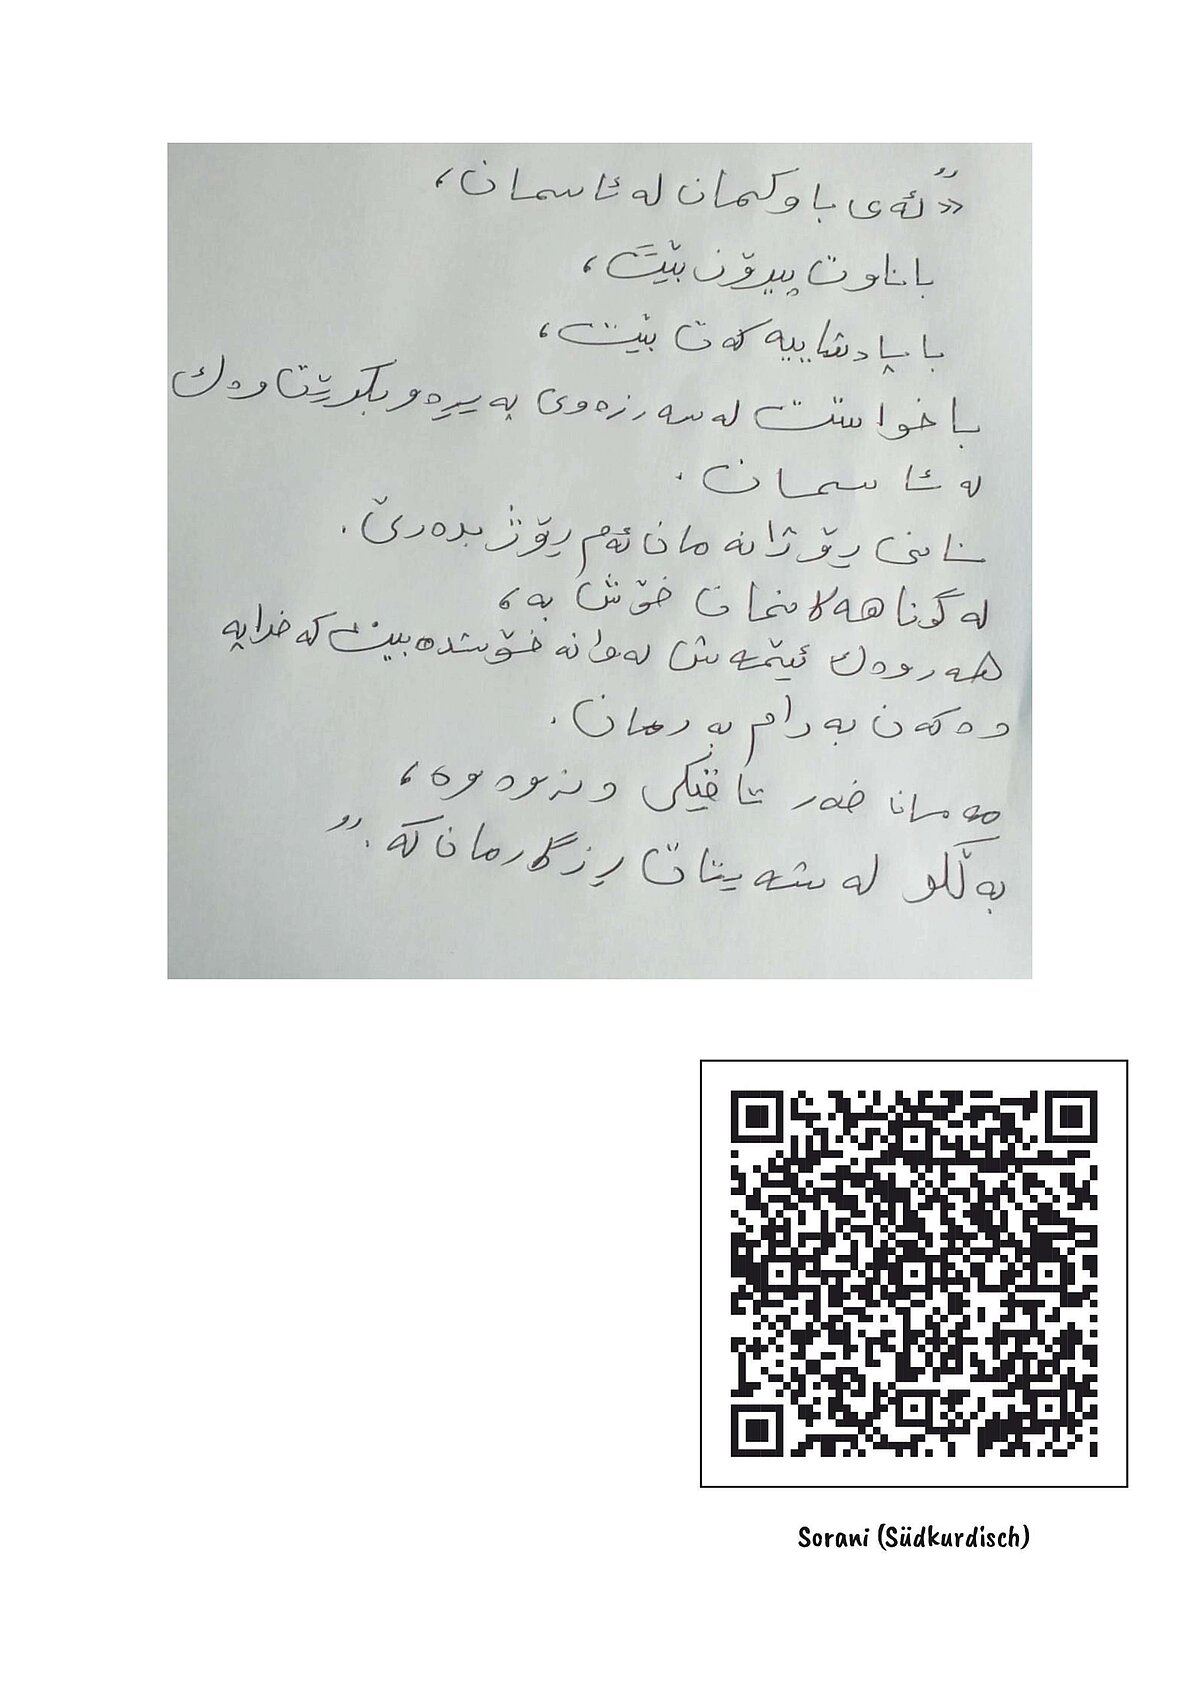 «ئەی باوکمان لە ئاسمان،
با ناوت پیرۆز بێت،
با پادشاییەکەت بێت،
با خواستت لە سەر زەوی پەیڕەو بکرێت وەك
لە ئاسمان.
نانی ڕۆژانەمان ئەم ڕۆژ بدەرێ.
لە گوناهەلانمان خۆش بە،
هەروەك ئێمەش لەوانە خۆشدەبین کە خراپە
دەکەن بەرامبەرمان.
مەمانخەر تاقیکردنەوەوە،
بەڵکو لە شەیتان ڕزگارمان کە.”
Sorani (Südkurdisch)